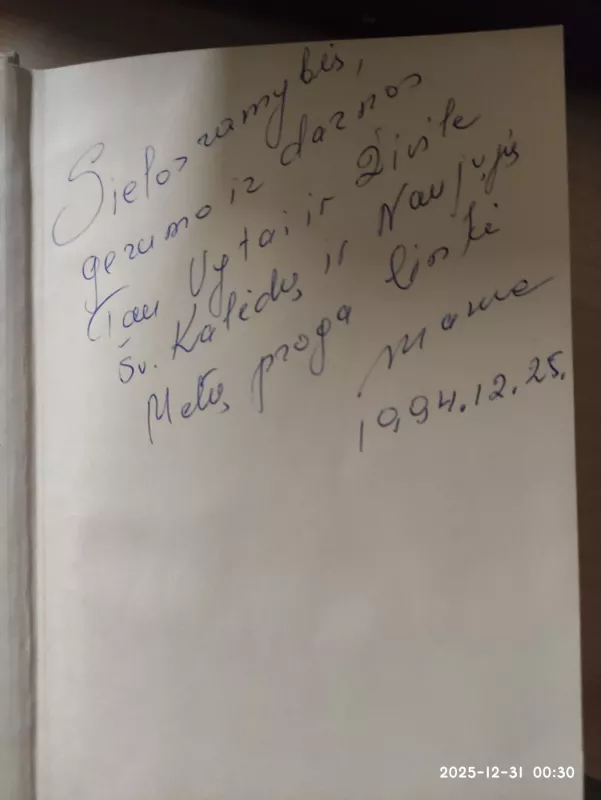 Sielos ramybės,
gerumo ir darnos
Tau Vytai ir Živile
Šv. Kalėdų ir Naujųjų
Metų proga linki
Mama
1994.12.25.
2025-12-31 00:30